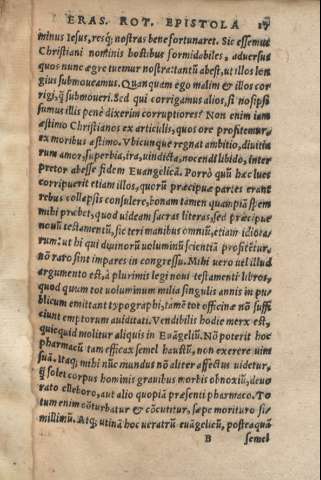 ERAS. ROT. EPISTOLA 17
minus Iesus, resq́; nostras bene fortunaret. Sic essemus
Christiani nominis hostibus formidabiles, aduersus
quos nunc ægre tuemur nostra: tantũ abest, ut illos lon
gius submoueamus. Quanquam ego malim & illos cor
rigi, q̃ submoueri. Sed qui corrigamus alios, si nosipsi
sumus illis penè dixerim corruptiores? Non enim iam
æstimo Christianos ex articulis, quos ore profitemur,
ex moribus æstimo. Vbicunque regnat ambitio, diuitia
rum amor, superbia, ira, uindicta, nocendi libido, inter
pretor abesse fidem Euangelicã. Porrò quũ hæc lues
corripuerit etiam illos, quorũ præcipuæ partes erant
rebus collapsis consulere, bonam tamen quampiã spem
mihi præbet, quod uideam sacras literas, sed præcipue
noui testamentũ, sic teri manibus omniũ, etiam idiota,
rum: ut hi qui diuinorũ uoluminũ scientiã profitẽtur,
nõ raro sint impares in congressu. Mihi uero uel illud
argumento est, à plurimis legi noui testamenti libros,
quod quum tot uoluminum milia singulis annis in pu
blicum emittant typographi, tamẽ tot officinæ nõ suffi
ciunt emptorum auiditati. Vendibilis hodie merx est,
quicquid molitur aliquis in Euãgeliũ. Nõ poterit hoc
pharmacũ tam efficax semel haustũ, non exerere uim
suã. Itaq; mihi nũc mundus nõ aliter affectus uidetur,
q̃ solet corpus hominis grauibus morbis obnoxiũ, deuo
rato elleboro, aut alio quopiã præsenti pharmaco. To
tum enim cõturbatur & cõcutitur, sæpe morituro si,
millimũ. Atq; utinã hoc ueratrũ euãgelicũ, postea quã
B semel